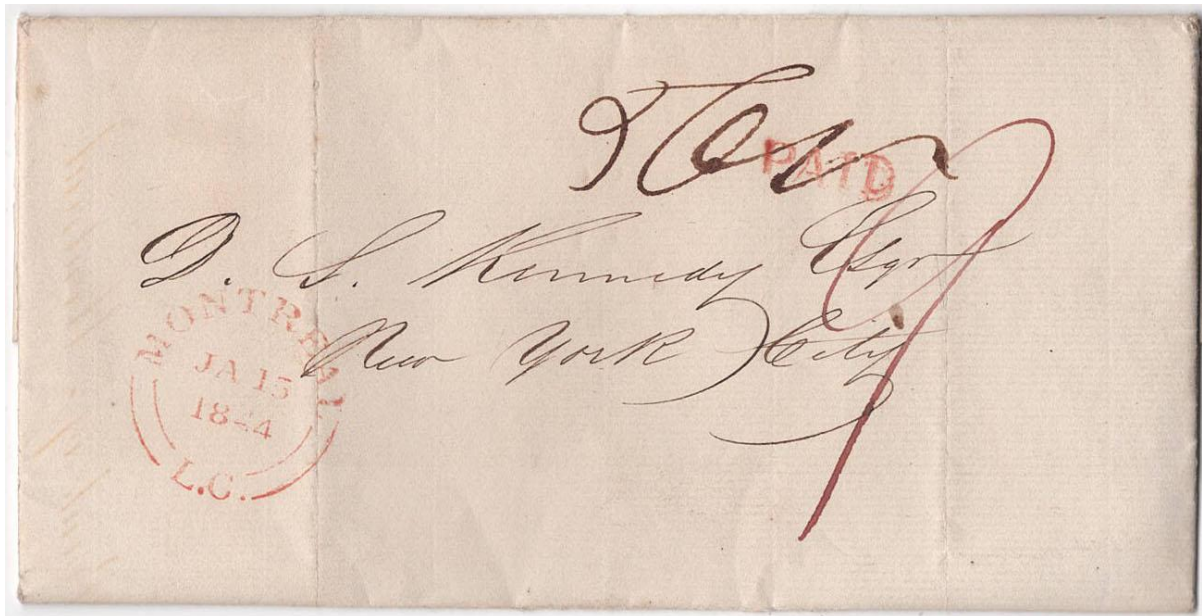 PAID
D. S. Kennedy Esqr
New York City
MONTREAL
JA 15
1844
L.C.